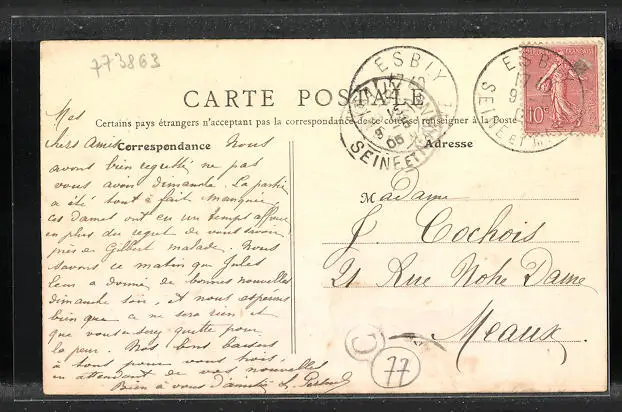 773863
ESBLY
17
SEINE ET M
10
CARTE POSTALE
Certains pays étrangers n'acceptant pas la correspondance de ce côté se renseigner à la Poste
Correspondance
Adresse
Mes
chers Amis Nous
avons bien regretté ne pas
vous avoir dimanche. La partie
a été tout à fait manquée,
ces dames ont eu un temps affreux
en plus du regret de vous savoir
près de Gilbert malade. Nous
savons ce matin que Jules
leur a donné de bonnes nouvelles
dimanche soir, et nous espérons
bien que ce ne sera rien et
que vous serez quitte pour
la peur. Nos bons baisers
à tous pour vous trois,
en attendant de vos nouvelles
Bien à vous d'amitié L.
Madame
J. Cochois
21 Rue Notre Dame
Meaux
77